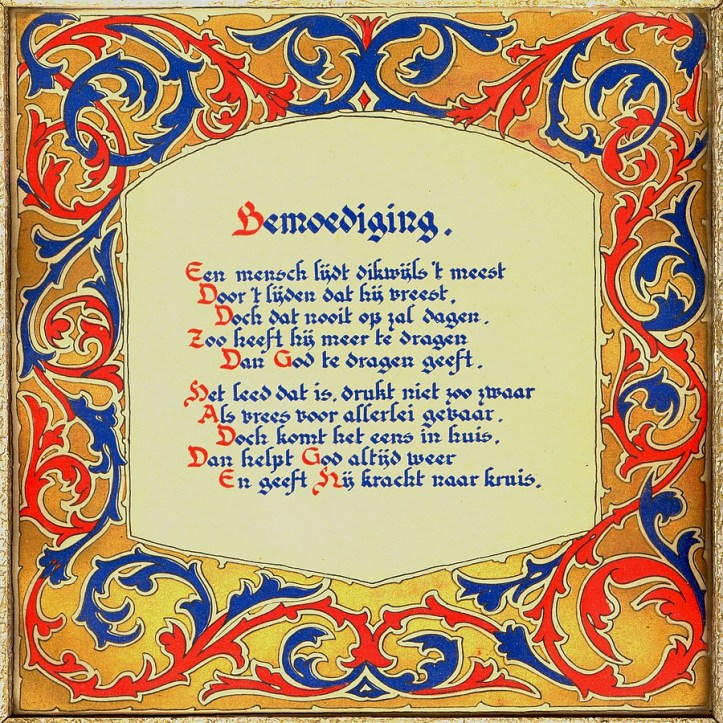 Bemoediging.
Een mensch lijdt dikwijls 't meest
Door 't lijden dat hij vreest,
Doch dat nooit op zal dagen.
Zoo heeft hij meer te dragen
Dan God te dragen geeft.
Het leed dat is, drukt niet zoo zwaar
Als vrees voor allerlei gevaar.
Doch komt het eens in huis,
Dan helpt God altijd weer
En geeft Hij kracht naar kruis.